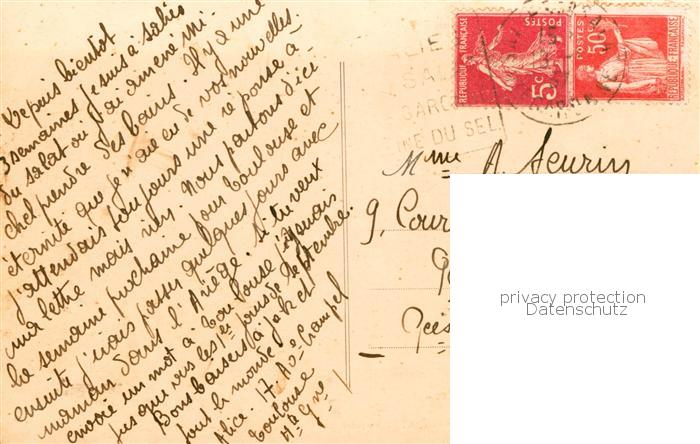 Depuis bientot
3 semaines je suis à Salies
du Salat où j'ai amené mi-
chel prendre des bains. Il y a une
eternité que je n'ai eu de vos nouvelles.
J'attendais toujours une réponse à
ma lettre mais rien. Nous partons d'ici
la semaine prochaine pour Toulouse et
ensuite j'irais passer quelques jours avec
maman dans l'Ariège. Si tu veux
envoie un mot à Toulouse j'y suis
jusque vers les 1er jours de Septembre.
Bons baisers à Jak et
tout le monde
Alice. 17 Ave Crampel
Toulouse
Hte Gne
REPUBLIQUE FRANÇAISE
POSTES
5c
POSTES
50c
REPUBLIQUE FRANÇAISE
DU SEL
Mme A. Seurin
9, Cour
privacy protection
Datenschutz